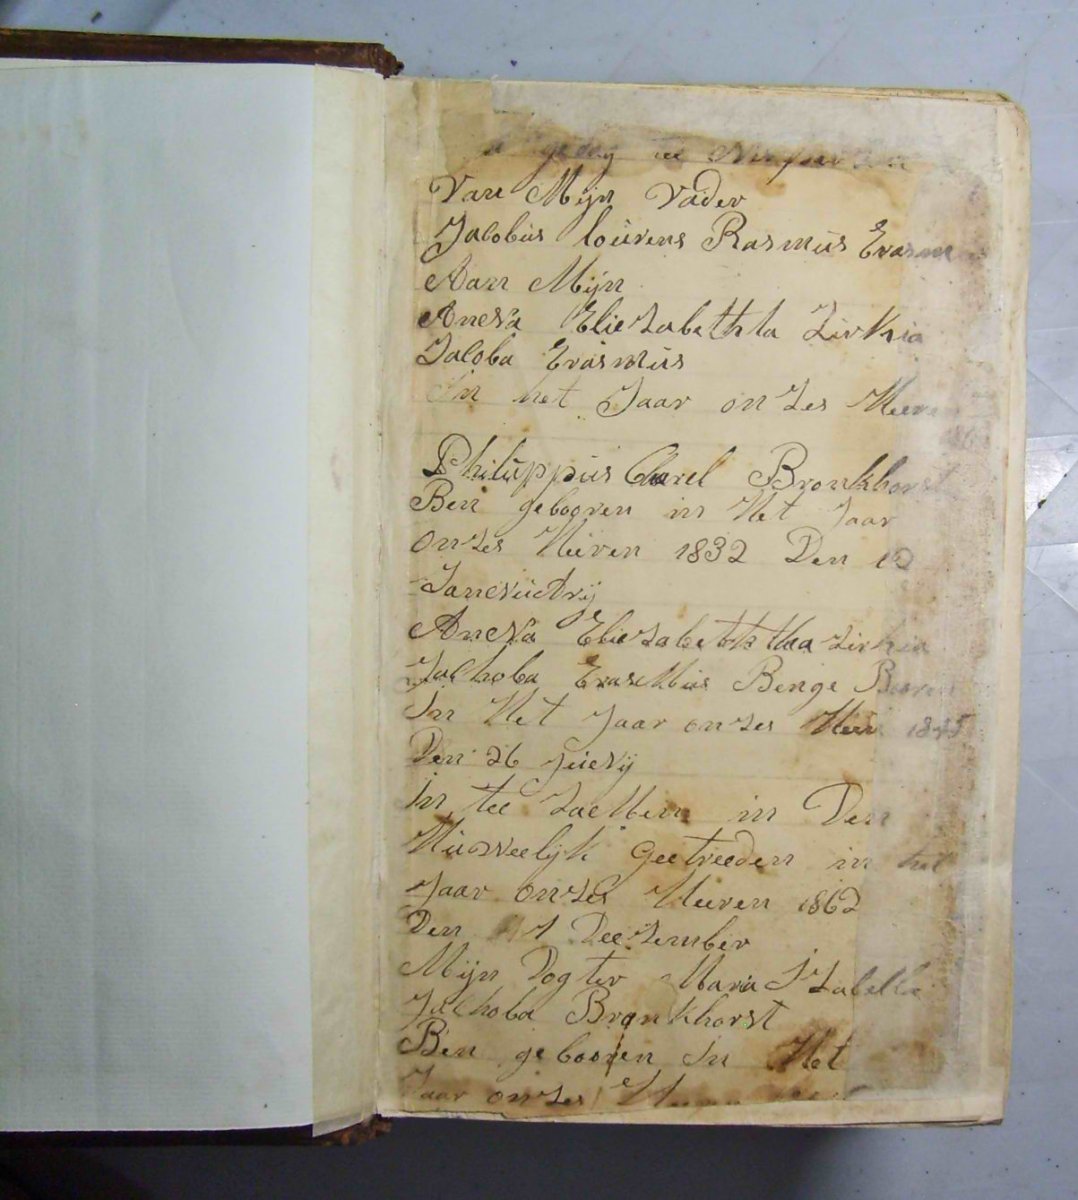 Van Mijn Vader
Jacobus lourens Rasmus Erasmus
Aan Mijn
Anena Eliezabethta Zirkia
Jacoba Erasmus
In het Jaar onzes Heeren
Philuppus Carel Bronkhorst
Ben gebooren in Het Jaar
onzes Heeren 1832 Den 12
Janeuary
Anena Eliezabeththa Zirkia
Jachoba Erasmus Benge Booren
In Het Jaar onzes Heer 1845
Den 26 Juely
in tee Zaemen in Den
Huweelijk Geetreeden in het
Jaar onzes Heeren 1862
Den 1 Deezember
Mijn Dogter Maria Izabella
Jachoba Bronkhorst
Ben gebooren In Het
Jaar onzes